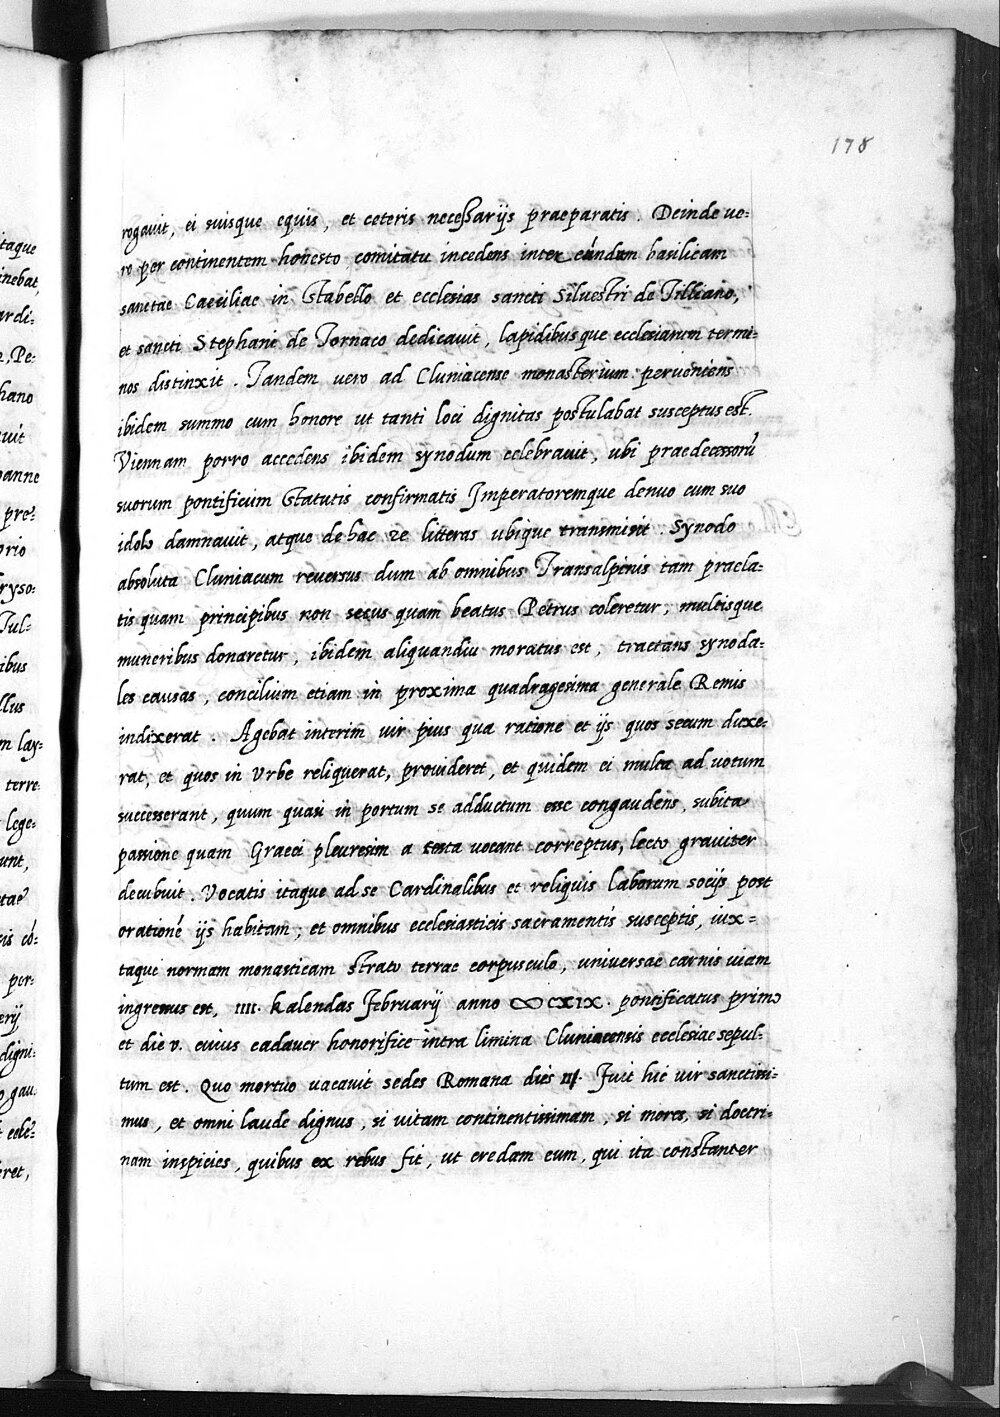 178
rogavit, ei suisque equis, et ceteris necessarijs praeparatis. Deinde ve-
ro per continentem honesto comitatu incedens inter eundum basilicam
sanctae Caeciliae in Stabello et ecclesias sancti Silvestri de Tilliano,
et sancti Stephani de Tornaco dedicavit, lapidibusque ecclesiarum termi-
nos distinxit. Tandem vero ad Cluniacense monasterium perveniens
ibidem summo cum honore ut tanti loci dignitas postulabat susceptus est.
Viennam porro accedens ibidem synodum celebravit, ubi praedecessorũ
suorum pontificum statutis confirmatis Imperatoremque denuo cum suo
idolo damnavit, atque de hac re litteras ubique transmisit. Synodo
absoluta Cluniacum reversus dum ab omnibus Transalpinis tam praela-
tis quam principibus non secus quam beatus Petrus coleretur, multisque
muneribus donaretur, ibidem aliquandiu moratus est, tractans synoda-
les causas, concilium etiam in proxima quadragesima generale Remis
indixerat. Agebat interim vir pius qua ratione et ijs quos secum duxe-
rat, et quos in Urbe reliquerat, provideret, et quidem ei multa ad votum
successerant, quum quasi in portum se adductum esse congaudens, subita
passione quam Graeci pleuresim a costa vocant correptus, lecto graviter
decubuit. Vocatis itaque ad se Cardinalibus et reliquis laborum socijs post
orationẽ ijs habitam; et omnibus ecclesiasticis sacramentis susceptis, iux-
taque normam monasticam strato terrae corpusculo, universae carnis viam
ingressus est, IIII. kalendas Februarij anno ∞CXIX. pontificatus primo
et die v. cuius cadaver honorifice intra limina Cluniacensis ecclesiae sepul-
tum est. Quo mortuo vacavit sedes Romana dies IIJ. Fuit hic vir sanctissi-
mus, et omni laude dignus, si vitam continentissimam, si mores, si doctri-
nam inspicies, quibus ex rebus fit, ut credam eum, qui ita constanter